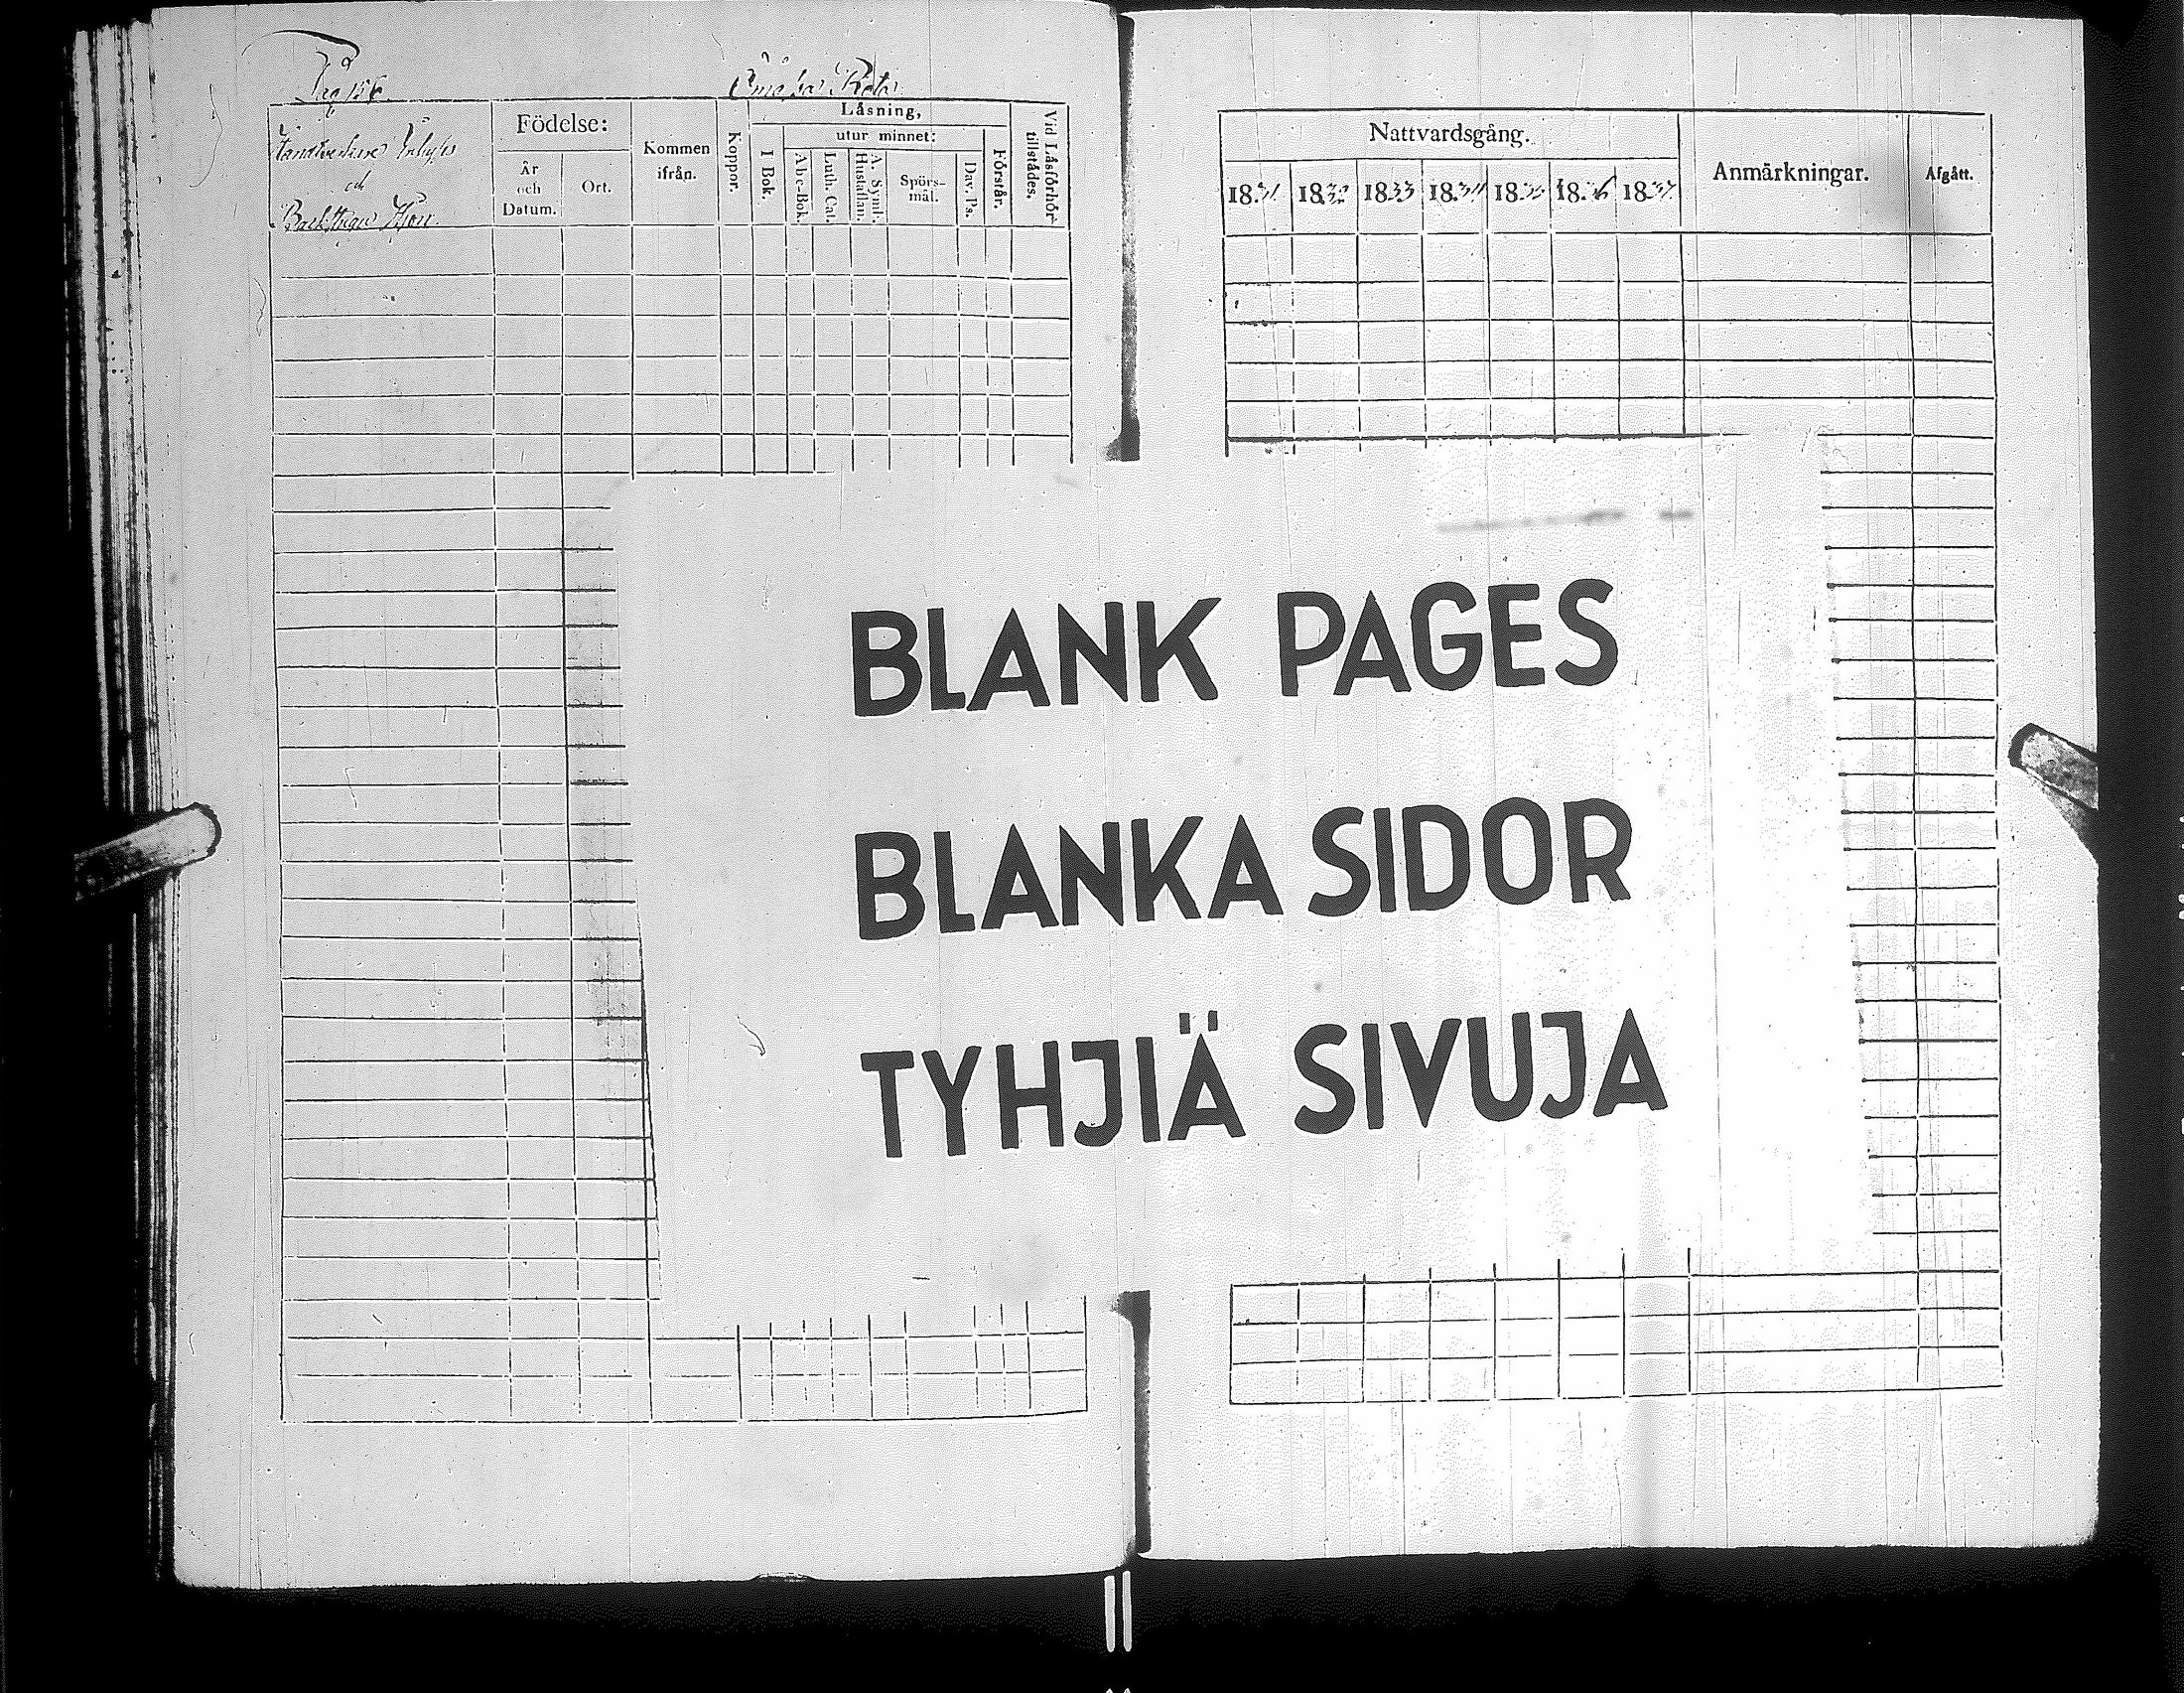 Födelse:
År
och
Datum.
Ort.
Kommen
ifrån.
Koppor.
Läsning,
I Bok.
utur minnet:
A b c-Bok.
Luth. Cat.
A. Symb.
Hustaflan.
Spörs-
mål.
Dav. Ps.
Förstår.
Vid Läsförhör
tillstådes.
och
Nattvardsgång.
1831 1832 1833 1834 1835 1836 1837
Anmärkningar.
Afgått.
BLANK PAGES
BLANKA SIDOR
TYHJIÄ SIVUJA